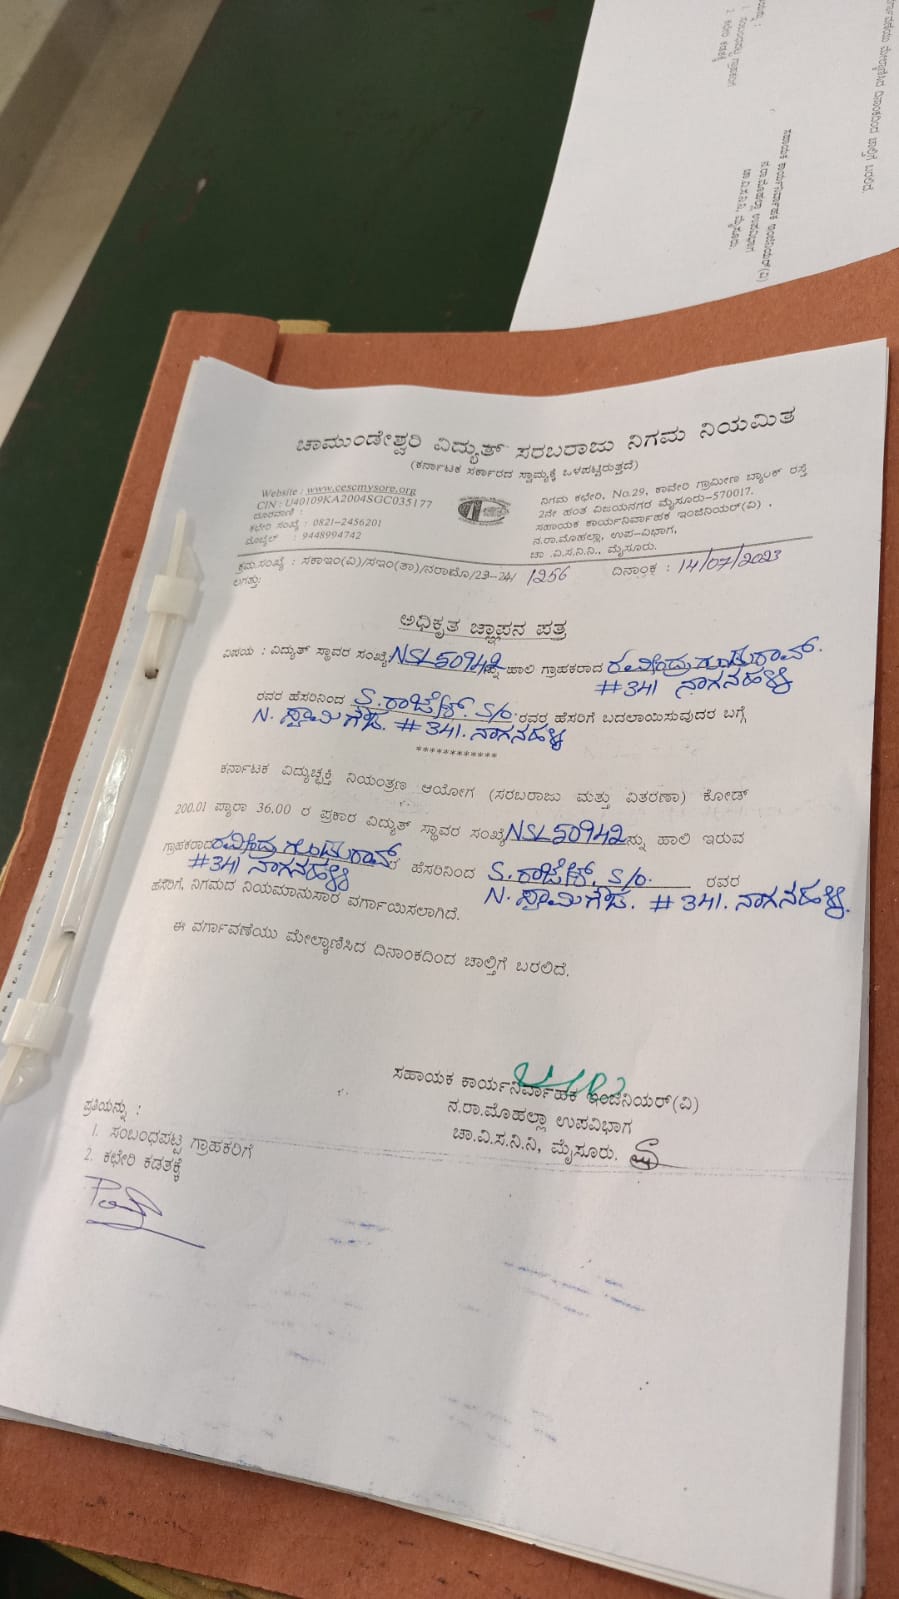 ಚಾಮುಂಡೇಶ್ವರಿ ವಿದ್ಯುತ್ ಸರಬರಾಜು ನಿಗಮ ನಿಯಮಿತ
(ಕರ್ನಾಟಕ ಸರ್ಕಾರದ ಸ್ವಾಮ್ಯಕ್ಕೆ ಒಳಪಟ್ಟಿರುತ್ತದೆ)
Website : www.cescmysore.org
CIN : U40109KA2004SGC035177
ದೂರವಾಣಿ :
ಕಛೇರಿ ಸಂಖ್ಯೆ : 0821-2456201
ಮೊಬೈಲ್ : 9448994742
ನಿಗಮ ಕಛೇರಿ, No.29, ಕಾವೇರಿ ಗ್ರಾಮೀಣ ಬ್ಯಾಂಕ್ ರಸ್ತೆ
2ನೇ ಹಂತ ವಿಜಯನಗರ ಮೈಸೂರು-570017.
ಸಹಾಯಕ ಕಾರ್ಯನಿರ್ವಾಹಕ ಇಂಜಿನಿಯರ್(ವಿ) ,
ನ.ರಾ.ಮೊಹಲ್ಲಾ, ಉಪ-ವಿಭಾಗ,
ಚಾ .ವಿ.ಸ.ನಿ.ನಿ., ಮೈಸೂರು.
ಕ್ರಮ.ಸಂಖ್ಯೆ : ಸಕಾಇಂ(ವಿ)/ಸಇಂ(ತಾ)/ನರಾಮೊ/23-24/ 1256 ದಿನಾಂಕ : 14/07/2023
ಲಗತ್ತು:
ಅಧಿಕೃತ ಜ್ಞಾಪನ ಪತ್ರ
ವಿಷಯ : ವಿದ್ಯುತ್ ಸ್ಥಾವರ ಸಂಖ್ಯೆ NSL50942 ನ್ನು ಹಾಲಿ ಗ್ರಾಹಕರಾದ
#341 ನಾಗನಹಳ್ಳಿ
ರವರ ಹೆಸರಿನಿಂದ S. ರಾಜೇಶ್. S/o. ರವರ ಹೆಸರಿಗೆ ಬದಲಾಯಿಸುವುದರ ಬಗ್ಗೆ
N. ಸ್ವಾಮಿಗೌಡ. #341. ನಾಗನಹಳ್ಳಿ
************
ಕರ್ನಾಟಕ ವಿದ್ಯುಚ್ಛಕ್ತಿ ನಿಯಂತ್ರಣ ಆಯೋಗ (ಸರಬರಾಜು ಮತ್ತು ವಿತರಣಾ) ಕೋಡ್
200.01 ಪ್ಯಾರಾ 36.00 ರ ಪ್ರಕಾರ ವಿದ್ಯುತ್ ಸ್ಥಾವರ ಸಂಖ್ಯೆ NSL50942 ನ್ನು ಹಾಲಿ ಇರುವ
ಗ್ರಾಹಕರಾದ ಹೆಸರಿನಿಂದ S. ರಾಜೇಶ್. S/o. ರವರ
#341 ನಾಗನಹಳ್ಳಿ N. ಸ್ವಾಮಿಗೌಡ. #341. ನಾಗನಹಳ್ಳಿ.
ಹೆಸರಿಗೆ, ನಿಗಮದ ನಿಯಮಾನುಸಾರ ವರ್ಗಾಯಿಸಲಾಗಿದೆ.
ಈ ವರ್ಗಾವಣೆಯು ಮೇಲ್ಕಾಣಿಸಿದ ದಿನಾಂಕದಿಂದ ಚಾಲ್ತಿಗೆ ಬರಲಿದೆ.
ಸಹಾಯಕ ಕಾರ್ಯನಿರ್ವಾಹಕ ಇಂಜಿನಿಯರ್(ವಿ)
ನ.ರಾ.ಮೊಹಲ್ಲಾ ಉಪವಿಭಾಗ
ಚಾ.ವಿ.ಸ.ನಿ.ನಿ, ಮೈಸೂರು.
ಪ್ರತಿಯನ್ನು :
1. ಸಂಬಂಧಪಟ್ಟ ಗ್ರಾಹಕರಿಗೆ
2. ಕಛೇರಿ ಕಡತಕ್ಕೆ